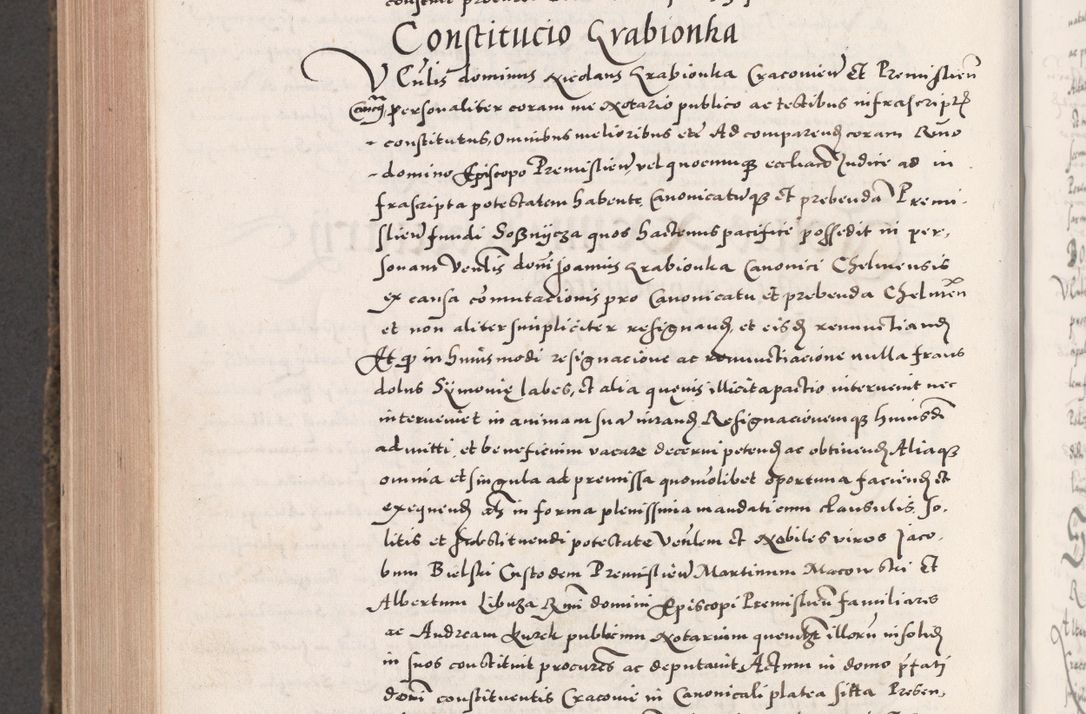 Constitucio Grabionka
Venlis dominus Nicolaus Grabionka Cracovien et Premislien
Canicus personaliter coram me Notario publico ac testibus infrascriptis
constitutus, Omnibus melioribus etc Ad comparend coram Rmo
domino Episcopo Premislien vel quocumque eccliaco Judice ad in
frascripta potestatem habente Canonicatumque et prebendam Premi-
slien fundi Soßnycza quos hactenus pacifice possedit in per-
sonam Venlis domi Joannis Grabionka Canonici Chelmensis
ex causa comutacionis pro Canonicatu et prebenda Chelmen
et non aliter simpliciter resignand et eisd renunctiand
Et qd in huiusmodi resignacione ac renunctiacione nulla fraus
dolus Symonię labes, et alia quevis illicita pactio intervenit nec
interveniet in animam suam iurand Resignacionemque huiusdi
admitti et beneficium vacare decerni petend ac obtinend Aliaque
omnia et singula ad premissa quomolibet oportuna faciend et
exequend etc in forma plenissima mandati cum clausulis so-
litis et substituendi potestate Venlem et Nobiles viros Jaco-
bum Bielski Custodem Premislien Martinum Macowski et
Albertum Libuza Rmi domini Episcopi Premislien familiares
ac Andream Kurek publicum Notarium quemlibet illorum insolid
in suos constituit procures ac deputavit Actum in domo pfati
domi constituentis Cracovie in Canonicali platea sitta Presen-